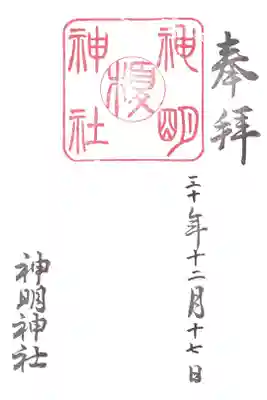 奉拝
神明
榎
神社
三十年十二月十七日
神明神社